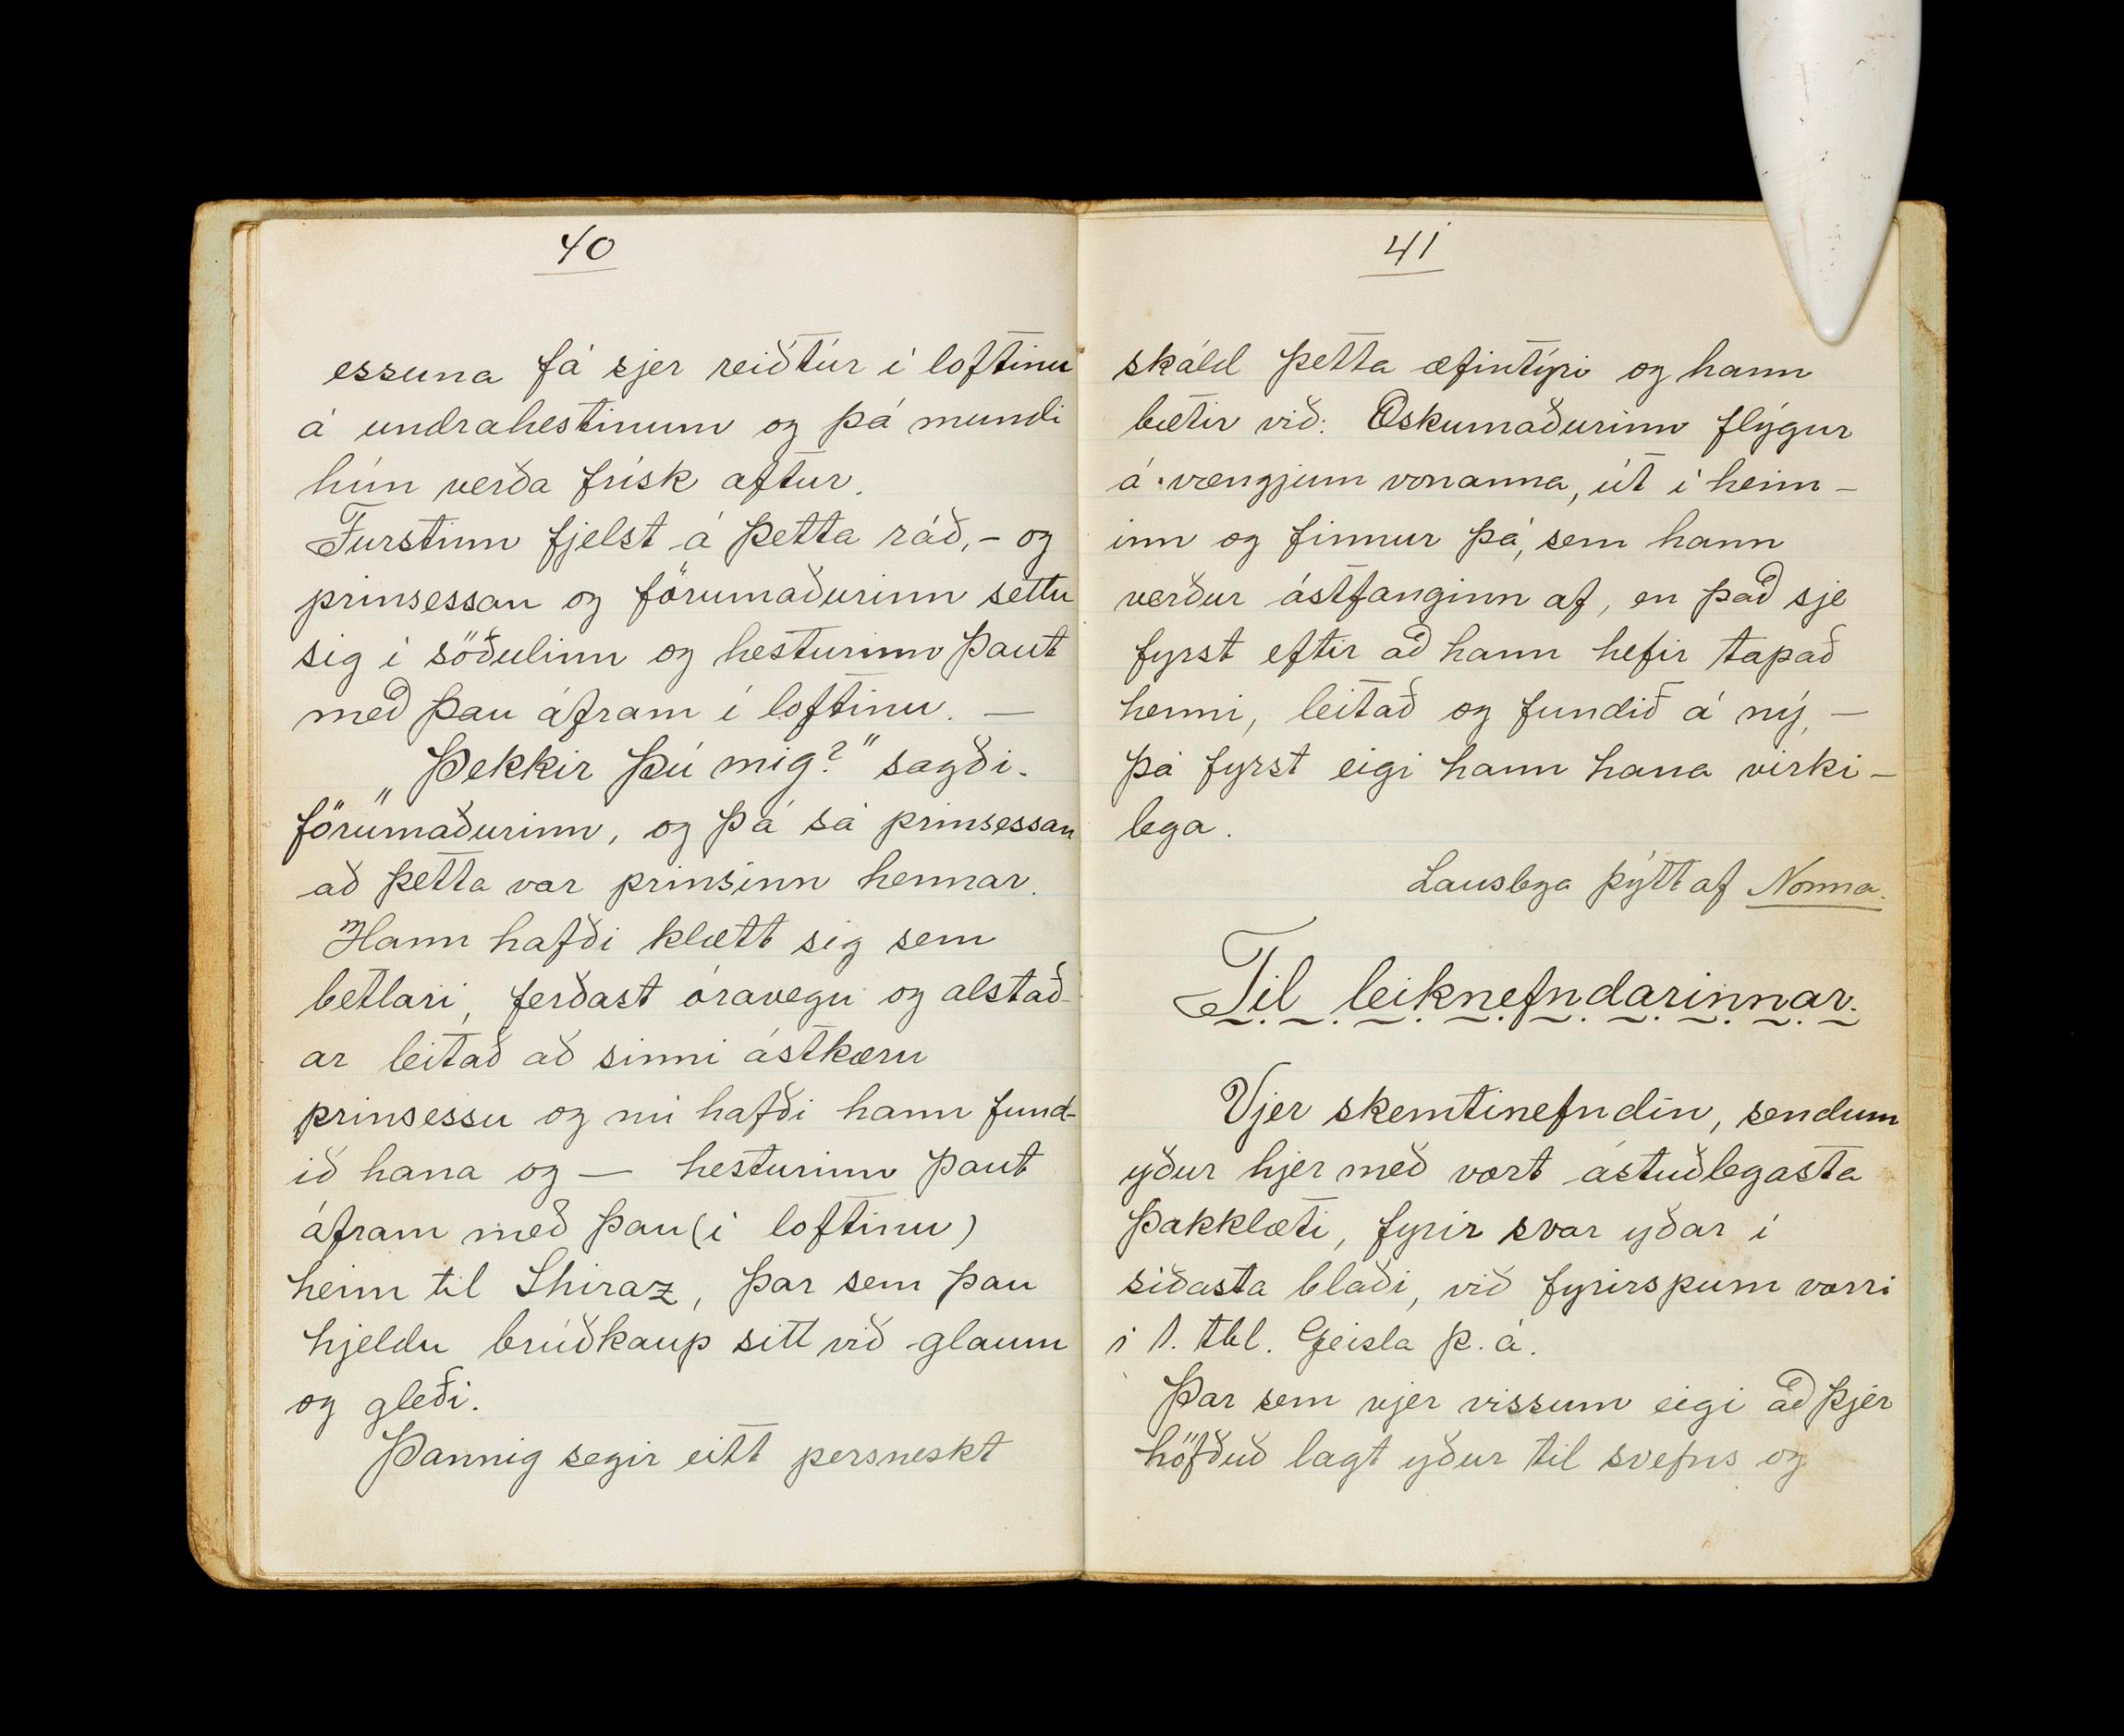 40
essuna fá sjer reiðtúr í loftinu
á undrahestinum og þá mundi
hún verða frísk aftur.
Furstinn fjelst á þetta ráð, - og
prinsessan og förumaðurinn settu
sig í söðulinn og hesturinn þaut
með þau áfram í loftinu. —
„Þekkir þú mig?" sagði
förumaðurinn, og þá sá prinsessan
að þetta var prinsinn hennar.
Hann hafði klætt sig sem
betlari, ferðast óravegu og alstað-
ar leitað að sinni ástkæru
prinsessu og nú hafði hann fund-
ið hana og — hesturinn þaut
áfram með þau (í loftinu)
heim til Shiraz, þar sem þau
hjeldu brúðkaup sitt við glaum
og gleði.
Þannig segir eitt persneskt
41
skáld þetta æfintýri og hann
bætir við: Æskumaðurinn flýgur
á vængjum vonanna, út í heim-
inn og finnur þá, sem hann
verður ástfanginn af, en það sje
fyrst eftir að hann hefir tapað
henni, leitað og fundið á ný, —
þá fyrst eigi hann hana virki-
lega.
Lauslega þýtt af Nonna.
Til leiknefndarinnar.
Vjer skemtinefndin, sendum
yður hjer með vort ástuðlegasta
þakklæti, fyrir svar yðar í
síðasta blaði, við fyrirspurn vorri
í 1. tbl. Geisla þ. á.
Þar sem vjer vissum eigi að þjer
höfðuð lagt yður til svefns og